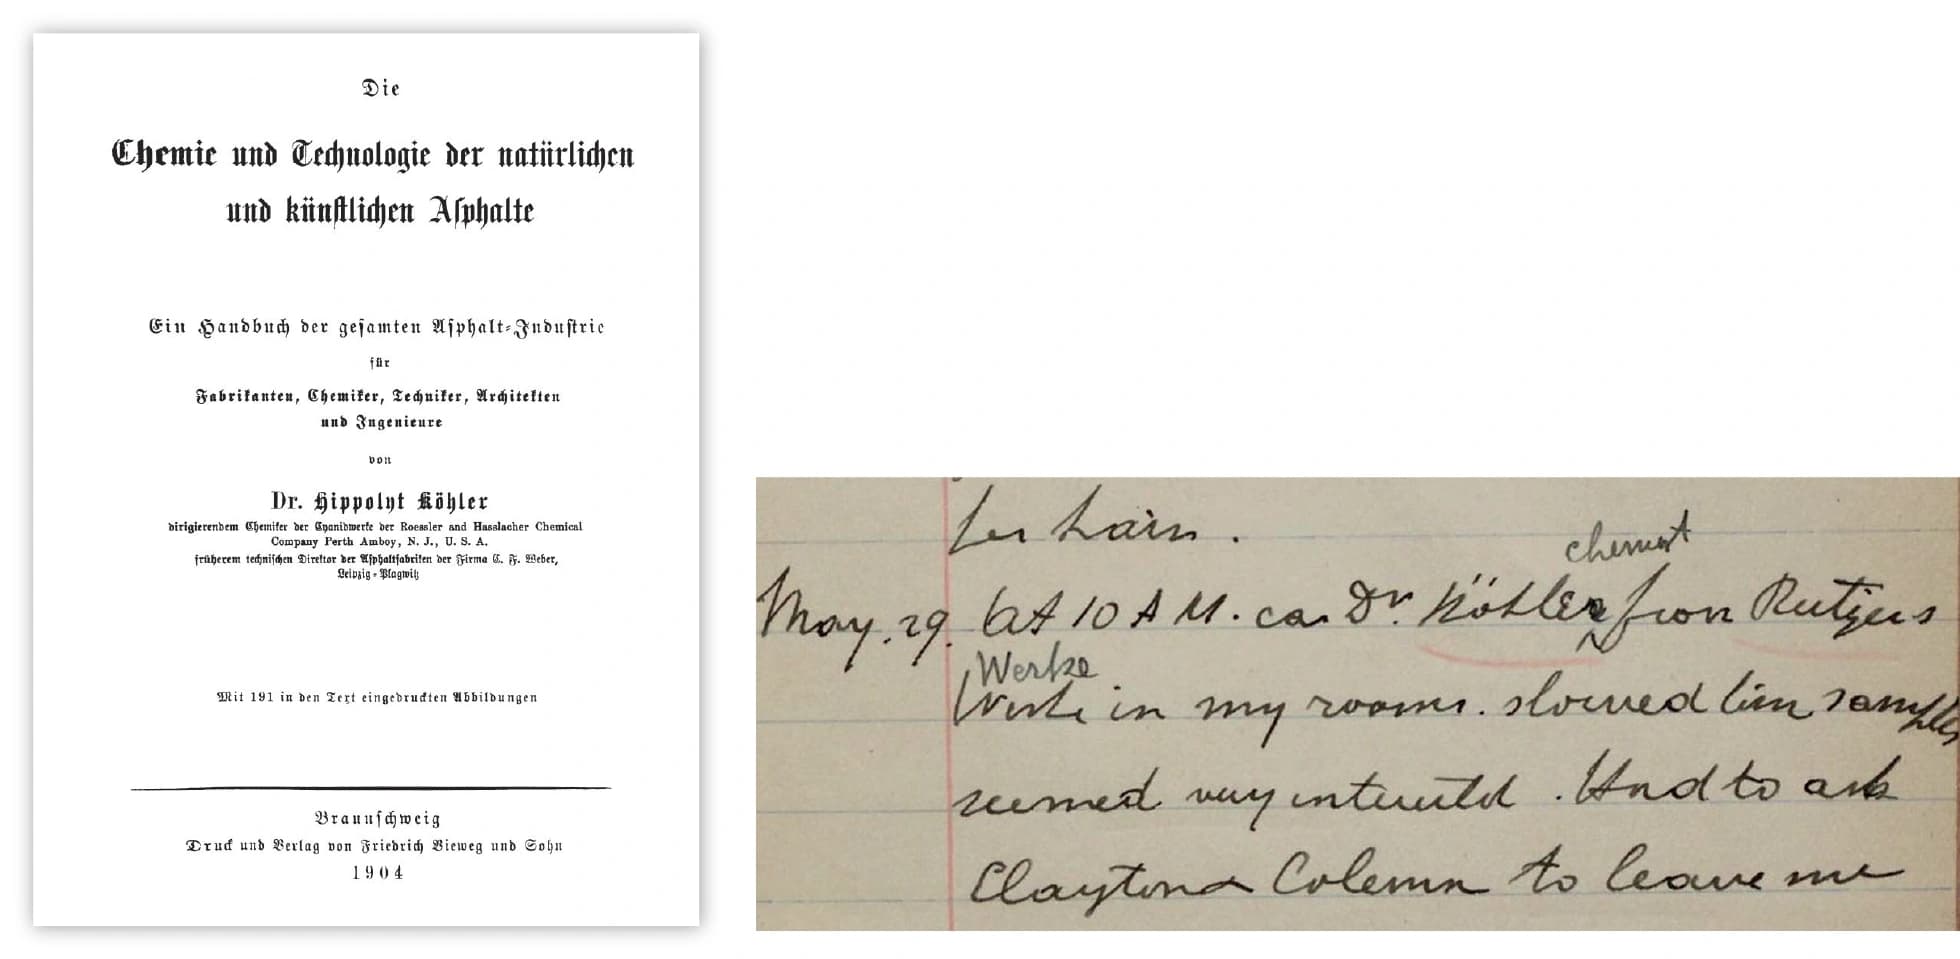 Die
Chemie und Technologie der natürlichen
und künſtlichen Aſphalte
Ein Handbuch der geſamten Aſphalt-Induſtrie
für
Fabrikanten, Chemiker, Techniker, Architekten
und Ingenieure
von
Dr. Hippolyt Köhler
dirigierendem Chemiker der Cyanidwerke der Roessler and Hasslacher Chemical
Company Perth Amboy, N. J., U. S. A.
früherem techniſchen Direktor der Aſphaltfabriken der Firma C. F. Weber,
Leipzig-Plagwitz
Mit 191 in den Text eingedruckten Abbildungen
Braunſchweig
Druck und Verlag von Friedrich Vieweg und Sohn
1904
chemist
May. 29. At 10 A M. Dr. Köhler from Rutgers
Werke
Werke in my rooms. showed him samples
seemed very interested. Had to ask
Clayton Coleman to leave me